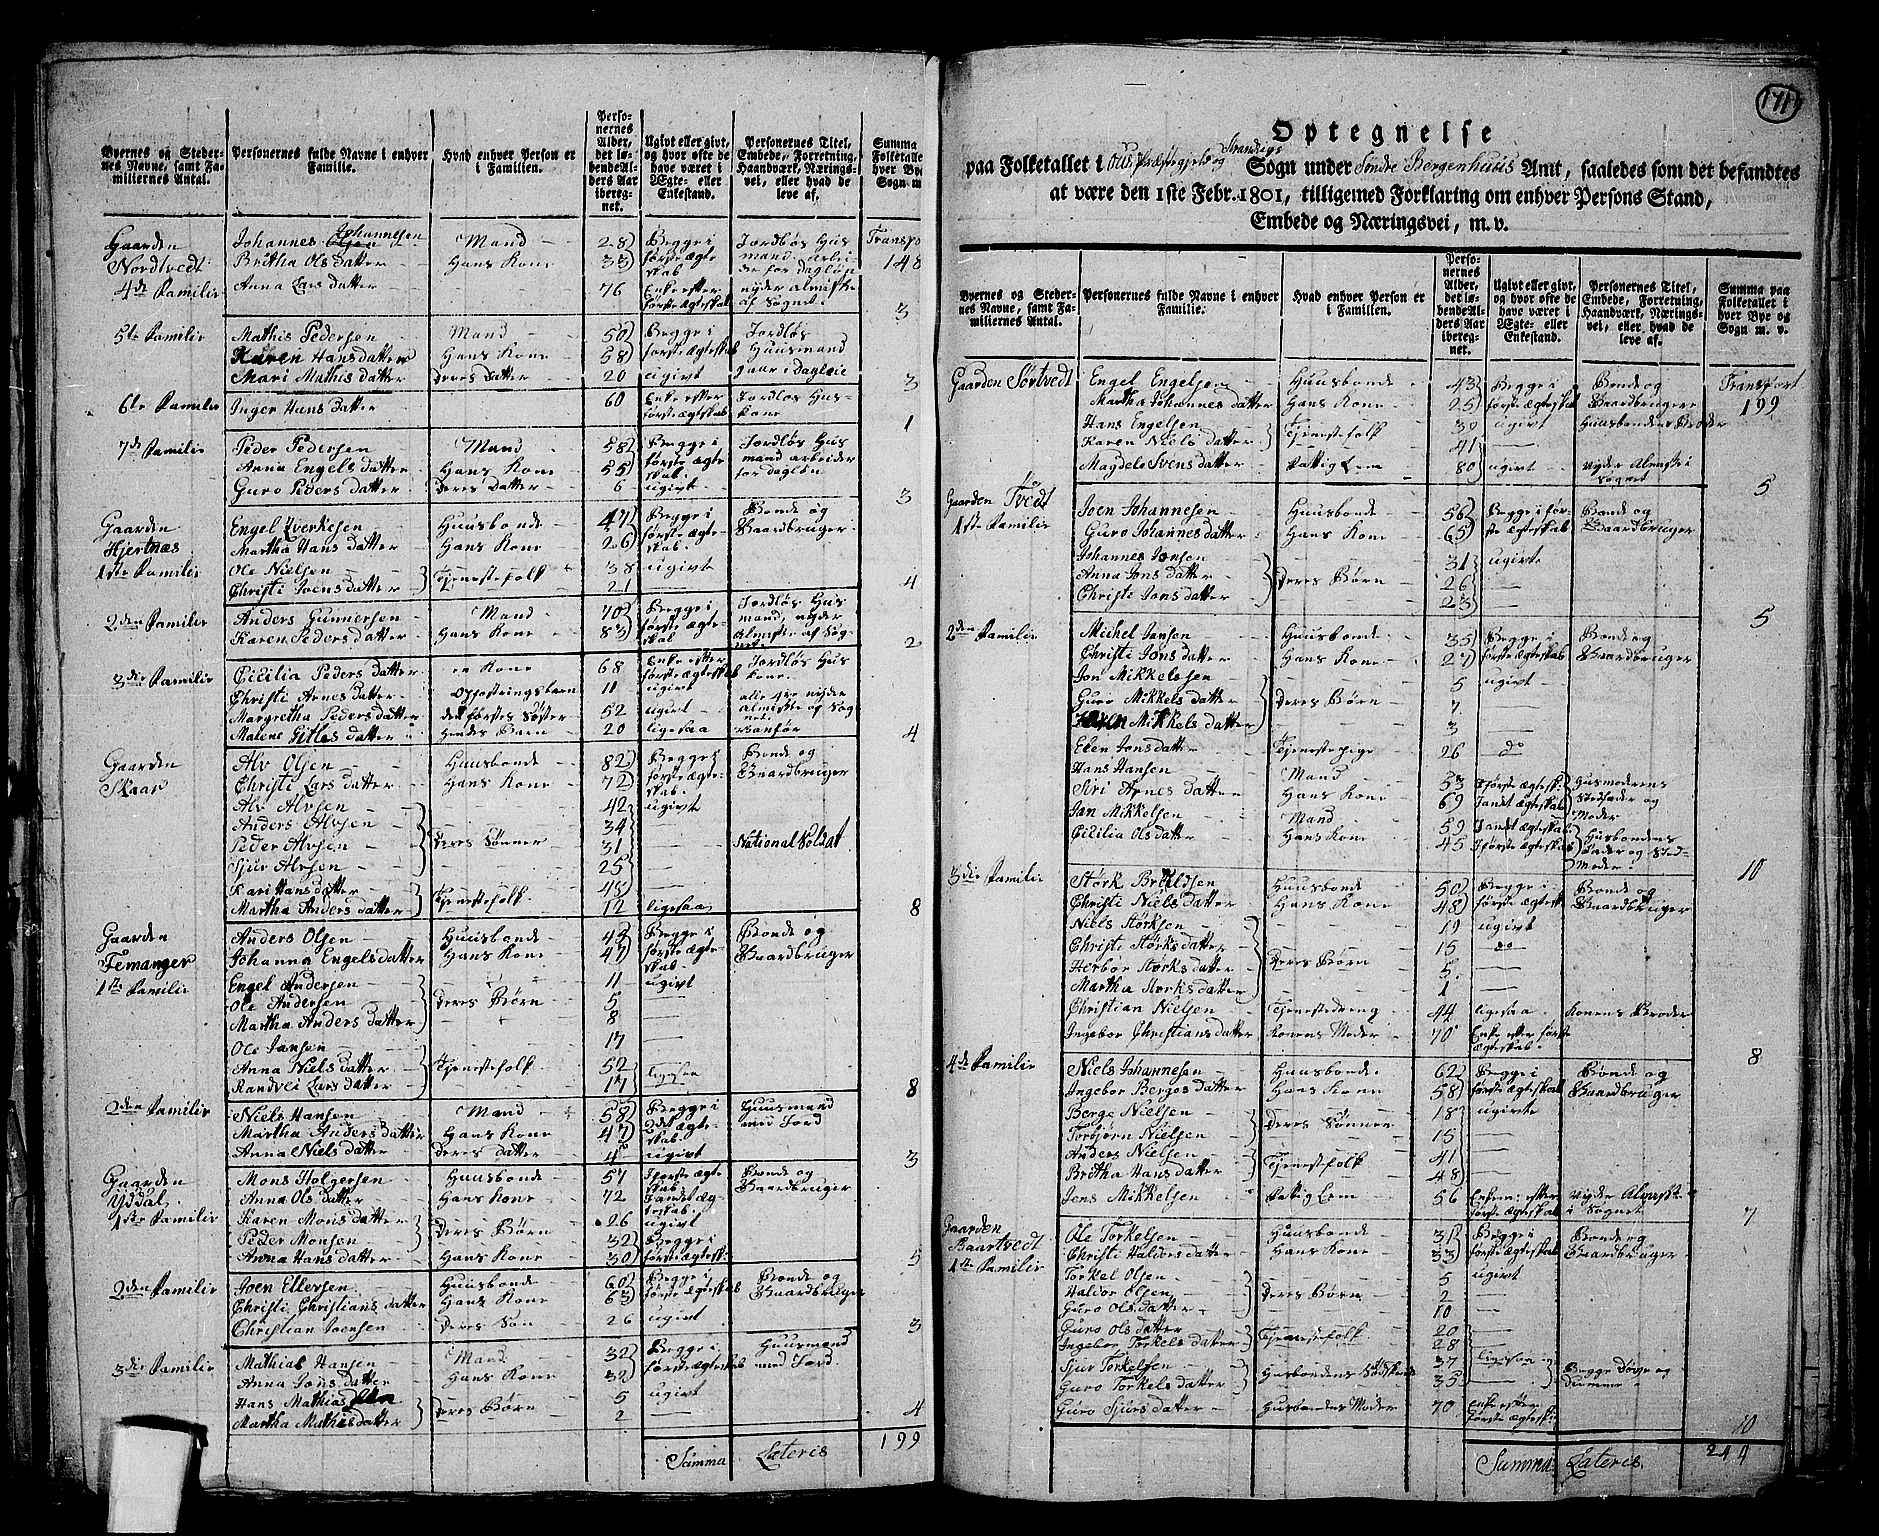 Byernes og Steder-
nes Navne, samt Fa-
miliernes Antal.
Personernes fulde Navne i enhver
Familie.
Hvad enhver Person er
i Familien.
Perso-
nernes
Alder,
det lø-
bende Al-
ders Aar
iberegnet.
Ugivt eller givt,
og hvor ofte de
have været i
Ægte- eller
Enkestand.
Personernes Titel,
Embede, Forretning,
Haandværk, Nærings-
vei, eller hvad de
leve af.
Summa
Folketallet
hver By
Sogn m.
Gaarden Nordtvedt
Transpo 148
4de Familie
Johannes Johannesen Mand 28 Begge i første ægteskab Jordløs Husmand arbeider for Dagløn
Britha Ols datter Hans Kone 33
Anna Lars datter 76 Enke efter første ægteskab nyder almisse af Sognet 3
5te Familie
Mathis Pedersen Mand 50 Begge i første ægteskab Jordløs Huusmand gaar i Dagleie
Karen Hans datter Hans Kone 58
Mari Mathis datter Deres Datter 20 ugivt 3
6te Familie
Inger Hans datter 60 Enke efter første ægteskab Jordløs Huskone 1
7de Familie
Peder Pedersen Mand 58 Begge i første ægteskab Jordløs Husmand arbeider for Dagløn
Anna Engels datter Hans Kone 55
Guro Peders datter Deres Datter 6 ugivt 3
Gaarden Hjertnæs
1ste Familie
Engel Iverksen Huusbonde 47 Begge i første ægteskab Bonde og Gaardbruger
Martha Hans datter Hans Kone 26
Ole Nielsen Tjenestefolk 38 ugivt
Christi Joens datter 21 4
2den Familie
Anders Gunnersen Mand 70 Begge i første ægteskab Jordløs Husmand, nyder Almisse af Sognet
Karen Peders datter Hans Kone 83 2
3die Familie
Cicilia Peders datter en Kone 68 Enke efter første ægteskab Jordløs Huskone
Christi Arnes datter Opfostringsbarn 11 ugivt alle 4re nyder
Margretha Peders datter den førstes Søster 52 ugivt Almisse af Sognet
Malene Gitles datter hendes Barn 20 ligesaa Vanfør 4
Gaarden Skaar
Alv Olsen Huusbonde 82 Begge i første ægteskab Bonde og Gaardbruger
Christi Lars datter Hans Kone 72
Alv Alvsen 42 ugivt
Anders Alvsen Deres Sønner 34
Peder Alvsen 31 National Soldat
Sjur Alvsen 25
Kari Hans datter Tjenestefolk 48
Martha Anders datter 12 ligesaa 8
Gaarden Femanger
1ste Familie
Anders Olsen Huusbonde 42 Begge i første ægteskab Bonde og Gaardbruger
Johanna Engels datter Hans Kone 47
Engel Andersen 11 ugivt
Ole Andersen Deres Børn 5
Martha Anders datter 8
Ole Jansen 17
Anna Niels datter Tjenestefolk 52
Randvei Lars datter 17 ligesaa 8
2den Familie
Niels Hansen Mand 58 Begge i 2det ægteskab Huusmand med Jord
Martha Anders datter Hans Kone 47
Anna Niels datter Deres datter 4 ugivt 3
Gaarden Yddal
1ste Familie
Mons Holgersen Huusbonde 57 Bonde og Gaardbruger
Anna Ols datter Hans Kone 72
Karen Mons datter Deres Børn 26 ugivt
Peder Monsen 32 Begge i
Anna Hans datter Hans Kone 30 første ægtesk: 5
2den Familie
Joen Ellersen Huusbonde 60 Begge i første ægteskab Bonde og Gaardbruger
Christi Christians datter Hans Kone 63
Christian Joensen Deres Søn 26 ugivt 3
3die Familie
Mathias Hansen Mand 32 Begge i første ægteskab Huusmand med Jord
Anna Jons datter Hans Kone 32
Hans Mathias Deres Børn 5 ugivt
Martha Mathisdatter 2 4
Summa Lateris 199
171
Optegnelse
paa Folketallet i Ous Præstegjeld og Strandvigs Sogn under Søndre Bergenhuus Amt, saaledes som det befandtes
at være den 1ste Febr. 1801, tilligemed Forklaring om enhver Persons Stand,
Embede og Næringsvei, m. v.
Byernes og Steder-
nes Navne, samt Fa-
miliernes Antal.
Personernes fulde Navne i enhver
Familie.
Hvad enhver Person er
i Familien.
Perso-
nernes
Alder,
det lø-
bende Al-
ders Aar
iberegnet.
Ugivt eller givt,
og hvor ofte de
have været i
Ægte- eller
Enkestand.
Personernes Titel,
Embede, Forretning,
Haandværk, Nærings-
vei, eller hvad de
leve af.
Summa paa
Folketallet i
hver Bye og
Sogn m. v.
Gaarden Sørtvedt
Transport 199
Engel Engelsen Huusbonde 43 Begge i første ægteskab Bonde og Gaardbruger
Martha Johannes datter Hans Kone 25
Hans Engelsen Tjenestefolk 30 ugivt Huusbondens Broder
Karen Niels datter 41
Magdele Svens datter Fattig Lem 80 ugivt nyder Almisse i Sognet 5
Gaarden Tvedt
1ste Familie
Joen Johannesen Huusbonde 56 Begge i første ægteskab Bonde og Gaardbruger
Guro Johannes datter Hans Kone 65
Johannes Jonsen 31 ugivte
Anna Jons datter Deres Børn 26
Christi Jons datter 23 5
2den Familie
Michel Jansen Huusbonde 35 Begge i første ægteskab Bonde og Gaardbruger
Christi Jons datter Hans Kone 27
Jon Mikkelssen 5 ugivt
Guro Mikkels datter Deres Børn 7
Mikkels datter 3
Elen Jons datter Tjenestepige 26 do
Hans Hansen Mand 53 Husmoderens Stedfader og Moder
Siri Arnes datter Hans Kone 69
Jan Mikkelsen Mand 59 Husbondens Fader og Stedmoder
Cicilia Ols datter Hans Kone 45 10
3die Familie
Størk Huusbonde 50 Begge i første ægteskab Bonde og Gaardbruger
Christi Niels datter Hans Kone 48
Niels Størksen 19 ugivt
Christi Størks datter Deres Børn 15 do
Herbor Størks datter 5
Martha Størks datter 1
Christian Nielsen Tjenestedreng 44 ligesaa Konens Broder
Ingebor Christians datter Konens Moder 70 Enke efter første ægteskab 8
4de Familie
Niels Johannesen Huusbonde 62 Begge i første ægteskab Bonde og Gaardbruger
Ingebor Berges datter Hans Kone 58
Berge Nielsen Deres Sønner 18 ugivte
Torbjørn Nielsen 15
Anders Nielsen Tjenestefolk 41
Britha Hans datter 48
Jens Mikkelsen Fattig Lem 56 Enkem: efter første ægteskab nyder Almisse i Sognet 7
Gaarden Baartvedt
1ste Familie
Ole Torkelsen Huusbonde 31 Begge i første ægteskab Bonde og Gaardbruger
Christi Haldors datter Hans Kone 33
Torkel Olsen 5 ugivt
Haldor Olsen Deres Børn 2
Guro Ols datter 10
Guro Ols datter Tjenestefolk 20
Ingebor Torkels datter 28
Sjur Torkelsen Husbondens Sødskende 37 ligesaa Begge Døve og Dumme
Guro Torkels datter 35
Guro Sjurs datter Husbondes Moder 70 Enke efter første ægtesk: 10
Summa Lateris 244